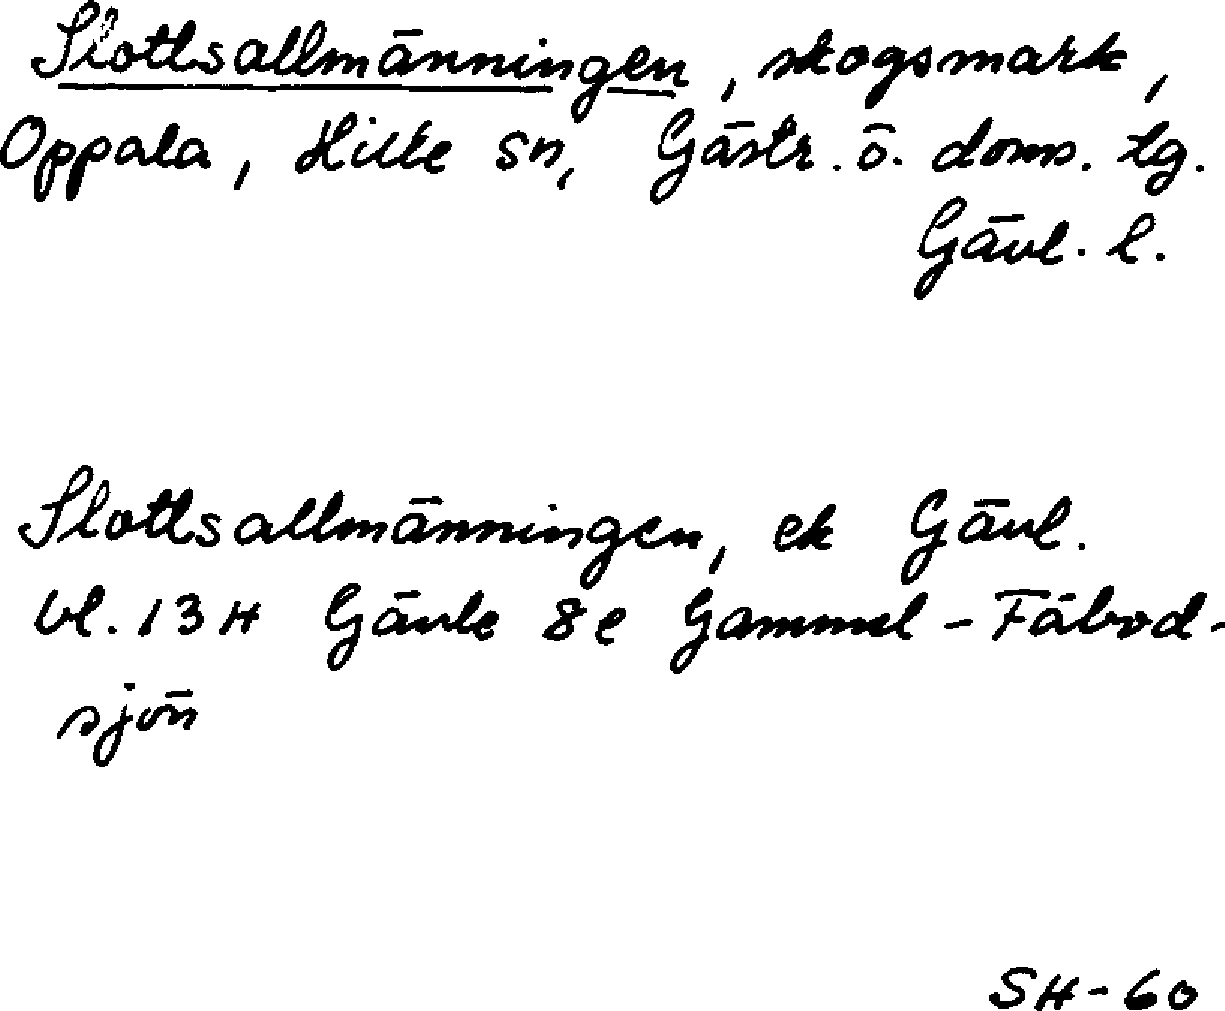 Slottsallmänningen, skogsmark,
Oppala, Hille sn, Gästr. ö. doms. tg.
Gävl. l.
Slottsallmänningen, ek Gävl.
bl. 13H Gävle 8e Gammel-Fäbod-
sjön
SH-60